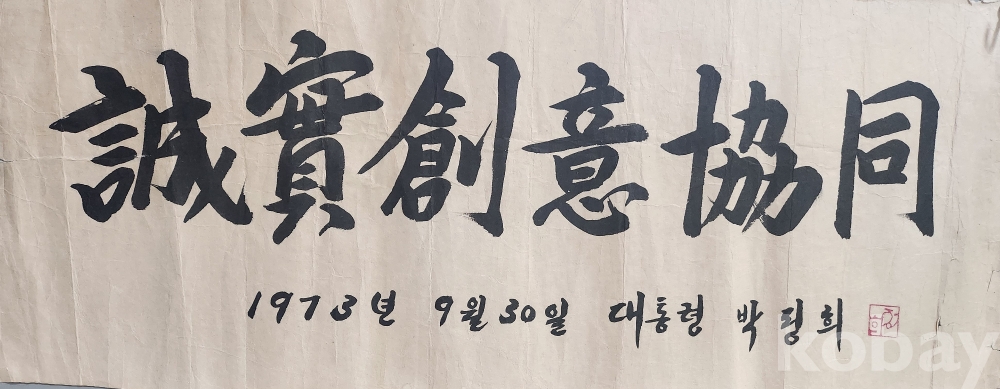 誠實創意協同
1973년 9월 30일 대통령 박정희
kobay